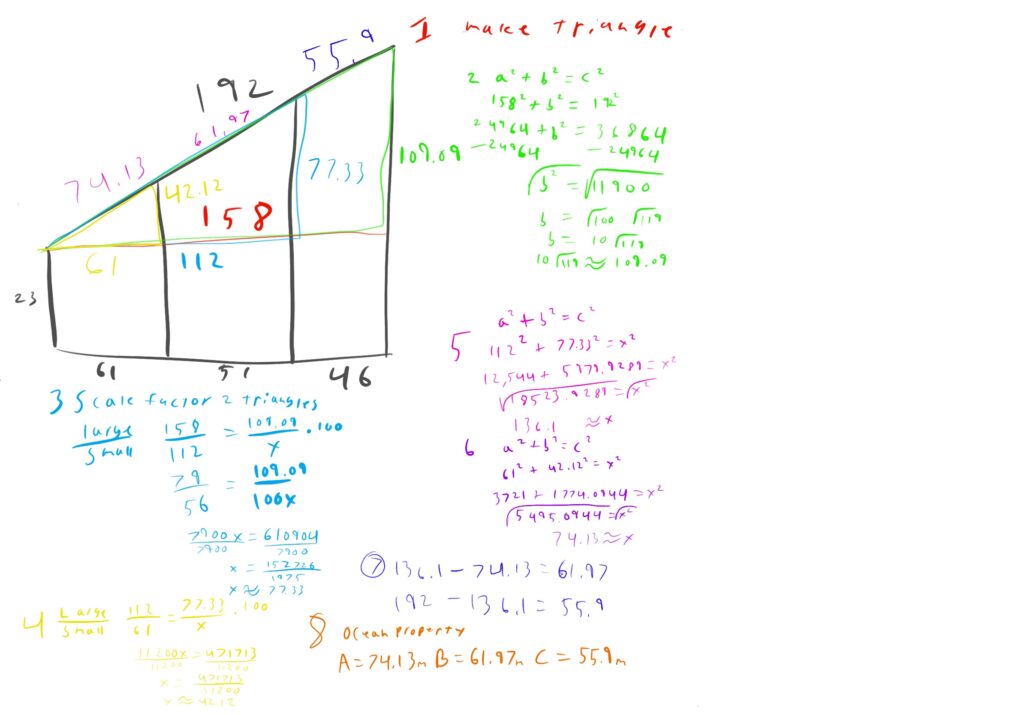 1 make triangle
55.9
192
61.97
74.13
42.12
77.33
109.09
158
61
112
23
61
51
46
2 a² + b² = c²
158² + b² = 192²
24964 + b² = 36864
-24964 -24964
√b² = √11900
b = √100 √119
b = 10√119
10√119 ≈ 109.09
3 Scale factor 2 triangles
large/small 158/112 = 109.09/x · 100
79/56 = 109.09/100x
7900x/7900 = 610904/7900
x = 152726/1975
x ≈ 77.33
4 Large/small 112/61 = 77.33/x · 100
11200x/11200 = 471713/11200
x = 471713/11200
x ≈ 42.12
5 a² + b² = c²
112² + 77.33² = x²
12,544 + 5979.9289 = x²
√18523.9289 = √x²
136.1 ≈ x
6 a² + b² = c²
61² + 42.12² = x²
3721 + 1774.0944 = x²
√5495.0944 = √x²
74.13 ≈ x
7 136.1 - 74.13 = 61.97
192 - 136.1 = 55.9
8 Ocean property
A = 74.13m B = 61.97m C = 55.9m